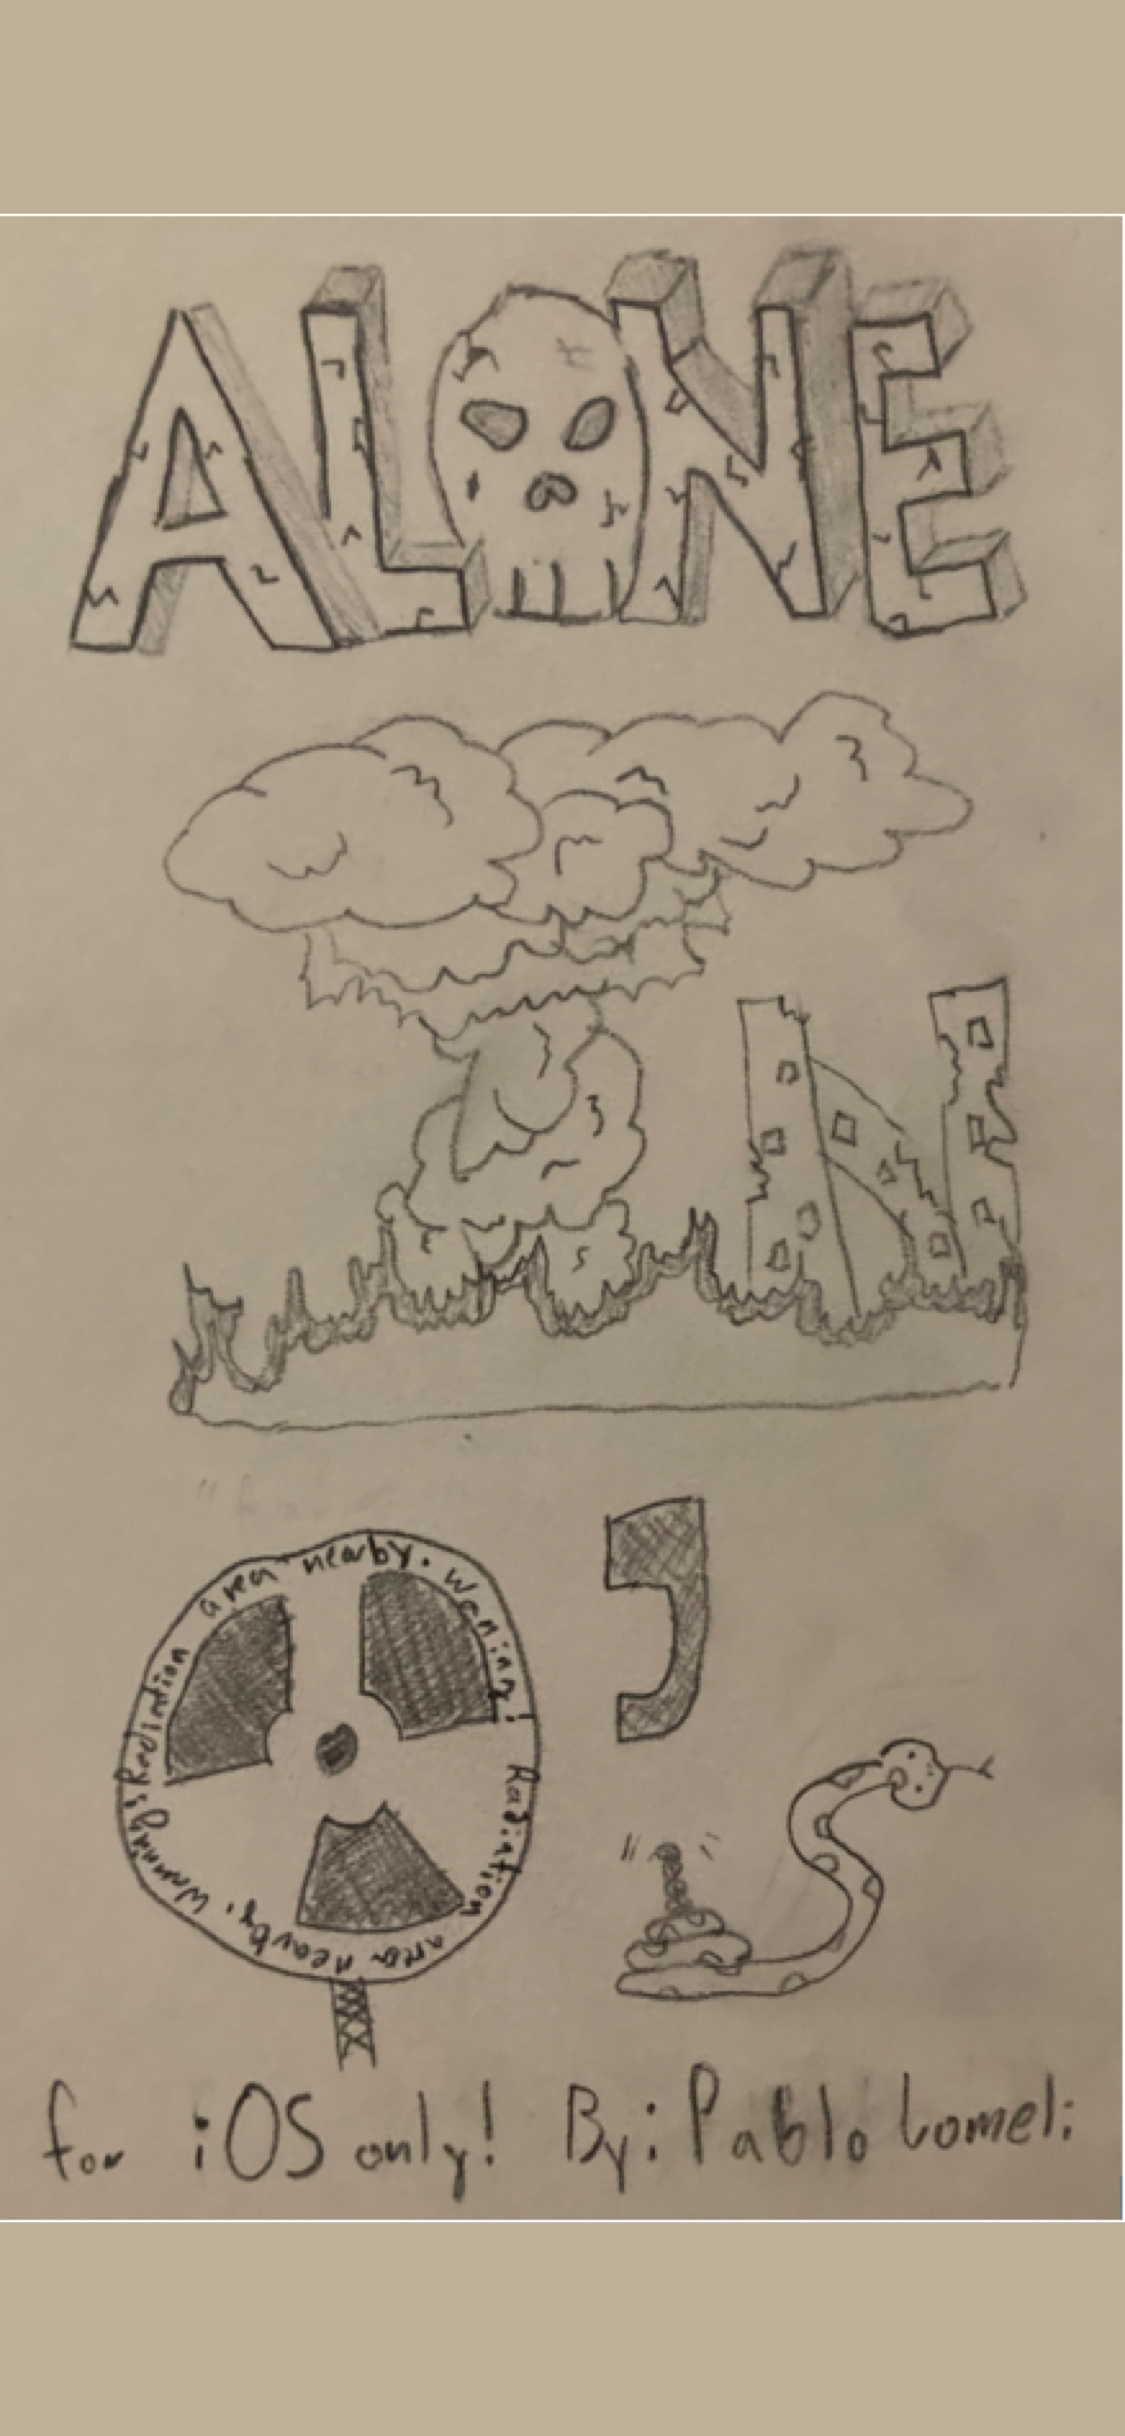 ALONE
IN
O'S
Radiation area nearby. Warning! Radiation area nearby. Warning!
for iOS only! By: Pablo Lomeli